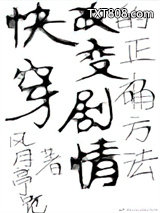 TXT808.com
快穿
改变剧情
的正确方法
风月亭
著